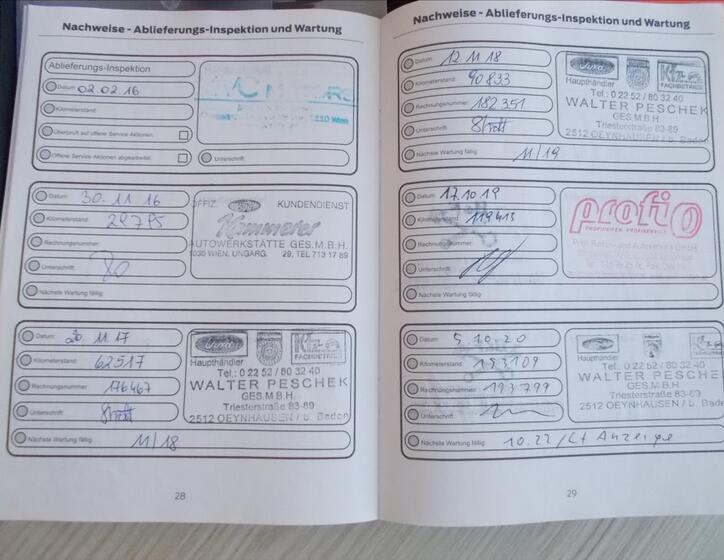 Nachweise - Ablieferungs-Inspektion und Wartung
Ablieferungs-Inspektion
Datum: 02.02.16
Kilometerstand:
Überprüft auf offene Service Aktionen:
Offene Service Aktionen abgearbeitet:
Unterschrift:
Wien
Datum: 30. 11 16
Kilometerstand:
Rechnungsnummer:
Unterschrift:
Nächste Wartung fällig:
OFFIZ. Ford KUNDENDIENST
Kammerer
AUTOWERKSTÄTTE GES.M.B.H.
1035 WIEN, UNGARG. 29, TEL 713 17 89
Datum: 20. 11. 17
Kilometerstand: 62517
Rechnungsnummer: 176467
Unterschrift:
Nächste Wartung fällig: 11/18
Ford
Haupthändler
Kfz
FACHBETRIEB
Tel.: 0 22 52 / 80 32 40
WALTER PESCHEK
GES.M.B.H.
Triesterstraße 83-89
2512 OEYNHAUSEN / b. Baden
28
Nachweise - Ablieferungs-Inspektion und Wartung
Datum: 12 11 18
Kilometerstand: 90833
Rechnungsnummer: 182351
Unterschrift:
Nächste Wartung fällig: 11/19
Ford
Haupthändler
Kfz
FACHBETRIEB
Tel.: 0 22 52 / 80 32 40
WALTER PESCHEK
GES.M.B.H.
Triesterstraße 83-89
2512 OEYNHAUSEN / b. Bad
Datum: 17. 10. 19
Kilometerstand: 119413
Rechnungsnummer:
Unterschrift:
Nächste Wartung fällig:
profi
Datum: 5. 10. 20
Kilometerstand: 153109
Rechnungsnummer: 193799
Unterschrift:
Nächste Wartung fällig: 10.22 / Lt Anzeige
Haupthändler
Tel.: 0 22 52 / 80 32 40
WALTER PESCHE
GES.M.B.H.
Triesterstraße 83-89
2512 OEYNHAUSEN / b. Bade
29